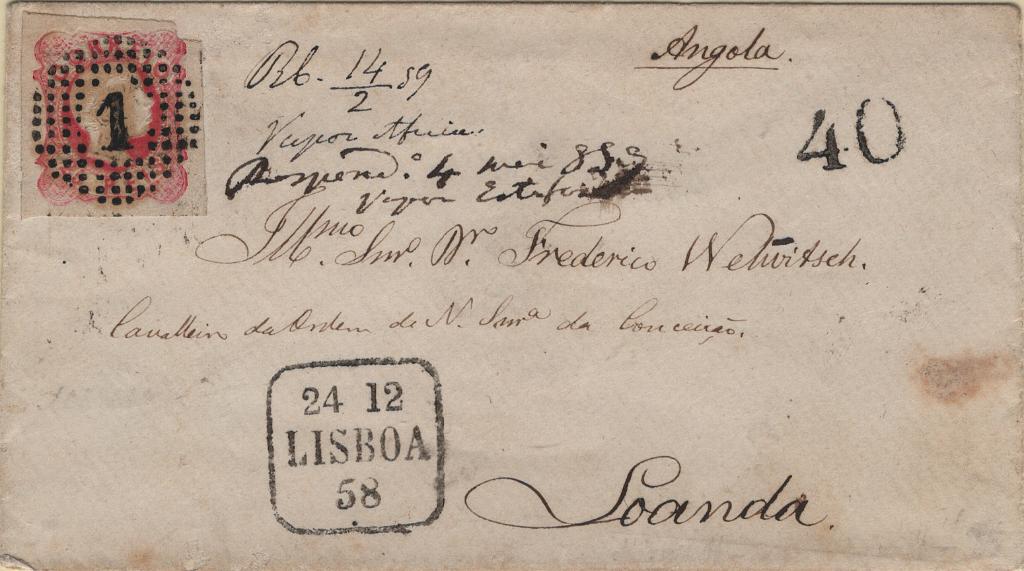 1
Rb. 14/2 59
Angola.
40
Vapor Africa.
4 mei
Vapor
Illmo. Snr. Dr. Frederico Welwitsch.
Cavalleiro da Ordem de N. Snra da Conceição.
24 12
LISBOA
58
Loanda.